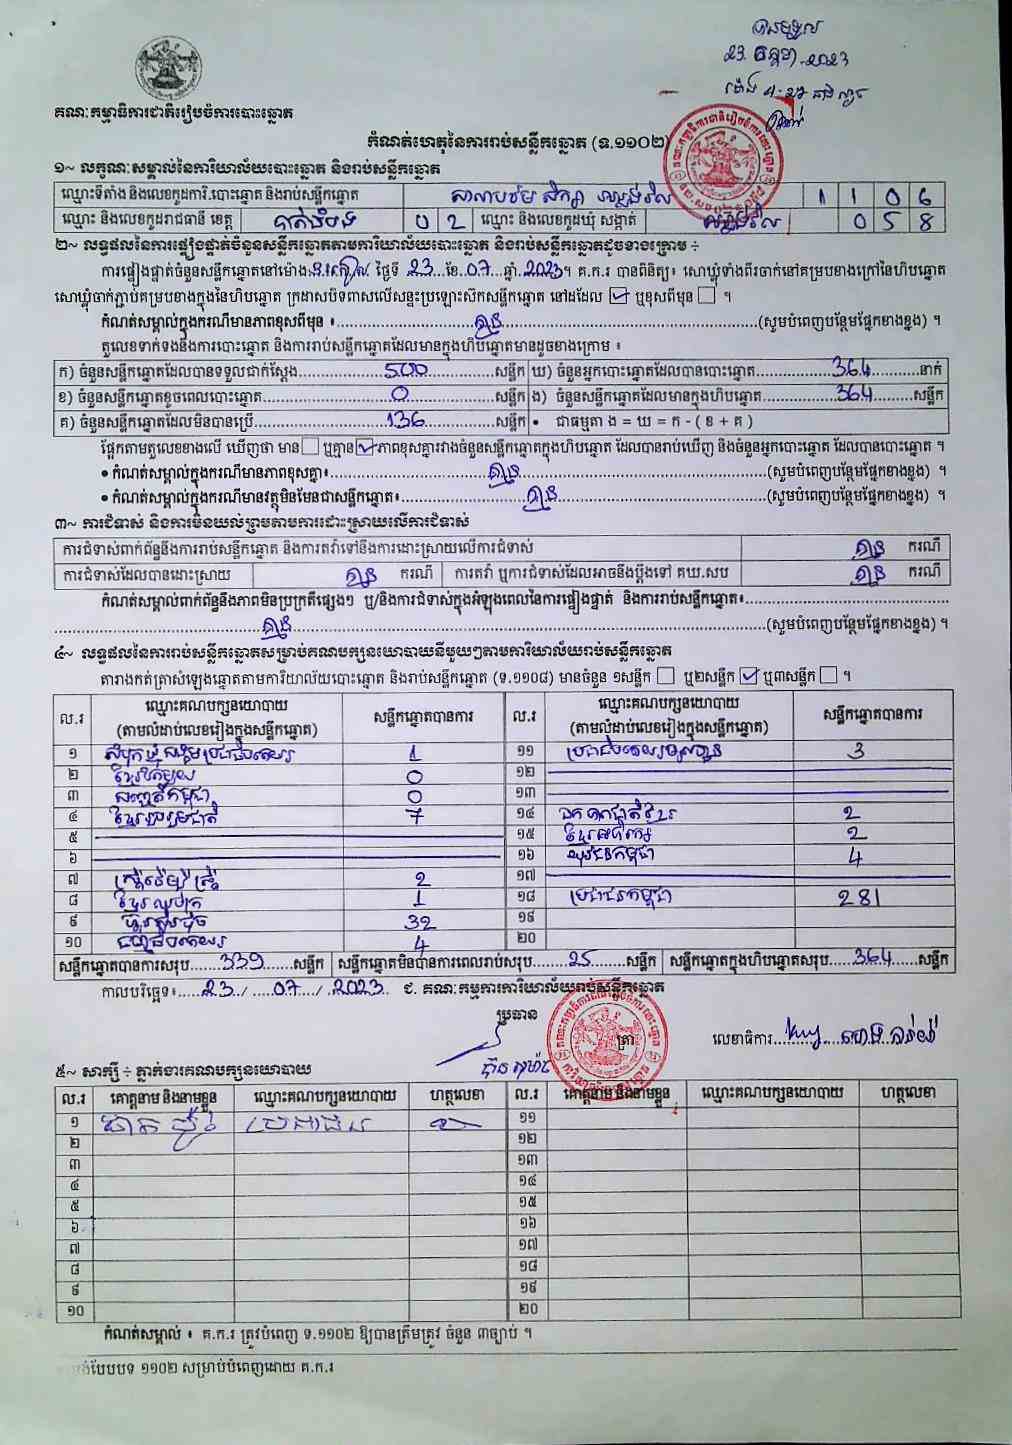 បានទទួល
23 កក្កដា 2023
គណៈកម្មាធិការជាតិរៀបចំការបោះឆ្នោត
កំណត់ហេតុនៃការរាប់សន្លឹកឆ្នោត (ឯ.១១០២)
១~ លក្ខណៈសម្គាល់នៃការិយាល័យបោះឆ្នោត និងរាប់សន្លឹកឆ្នោត
ឈ្មោះទីតាំង និងលេខកូដការិ.បោះឆ្នោត និងរាប់សន្លឹកឆ្នោត សាលាបឋមសិក្សា 1 1 0 6
ឈ្មោះ និងលេខកូដរាជធានី ខេត្ត បាត់ដំបង 0 2 ឈ្មោះ និងលេខកូដឃុំ សង្កាត់ 0 5 8
២~ លទ្ធផលនៃការផ្ទៀងផ្ទាត់ចំនួនសន្លឹកឆ្នោតតាមការិយាល័យបោះឆ្នោត និងរាប់សន្លឹកឆ្នោតដូចខាងក្រោម ÷
ការផ្ទៀងផ្ទាត់ចំនួនសន្លឹកឆ្នោតនៅម៉ោង ថ្ងៃទី 23 ខែ 07 ឆ្នាំ 2023 ។ គ.ក.រ បានពិនិត្យ៖ សោឃ្លុំទាំងពីរចាក់នៅគម្របខាងក្រៅនៃហិបឆ្នោត
សោឃ្លុំចាក់ភ្ជាប់គម្របខាងក្នុងនៃហិបឆ្នោត ក្រដាសបិទពាសលើសន្ទះប្រឡោះស៊កសន្លឹកឆ្នោត នៅដដែល ☑ ឬខុសពីមុន ☐ ។
កំណត់សម្គាល់ក្នុងករណីមានភាពខុសពីមុន ៖ គ្មាន (សូមបំពេញបន្ថែមផ្នែកខាងខ្នង) ។
តួលេខទាក់ទងនឹងការបោះឆ្នោត និងការរាប់សន្លឹកឆ្នោតដែលមានក្នុងហិបឆ្នោតមានដូចខាងក្រោម ៖
ក) ចំនួនសន្លឹកឆ្នោតដែលបានទទួលជាក់ស្តែង 500 សន្លឹក ឃ) ចំនួនអ្នកបោះឆ្នោតដែលបានបោះឆ្នោត 364 នាក់
ខ) ចំនួនសន្លឹកឆ្នោតខូចពេលបោះឆ្នោត 0 សន្លឹក ង) ចំនួនសន្លឹកឆ្នោតដែលមានក្នុងហិបឆ្នោត 364 សន្លឹក
គ) ចំនួនសន្លឹកឆ្នោតដែលមិនបានប្រើ 136 សន្លឹក • ជាធម្មតា ង = ឃ = ក - ( ខ + គ )
ផ្អែកតាមតួលេខខាងលើ ឃើញថា មាន ☐ ឬគ្មាន ☑ ភាពខុសគ្នារវាងចំនួនសន្លឹកឆ្នោត ដែលបានរាប់ឃើញ និងចំនួនអ្នកបោះឆ្នោត ដែលបានបោះឆ្នោត ។
• កំណត់សម្គាល់ក្នុងករណីមានភាពខុសគ្នា៖ គ្មាន (សូមបំពេញបន្ថែមផ្នែកខាងខ្នង) ។
• កំណត់សម្គាល់ក្នុងករណីមានវត្ថុមិនមែនជាសន្លឹកឆ្នោត៖ គ្មាន (សូមបំពេញបន្ថែមផ្នែកខាងខ្នង) ។
៣~ ការជំទាស់ និងការមិនយល់ព្រមតាមការដោះស្រាយលើការជំទាស់
ការជំទាស់ពាក់ព័ន្ធនឹងការរាប់សន្លឹកឆ្នោត និងការតវ៉ាទៅនឹងការដោះស្រាយលើការជំទាស់ គ្មាន ករណី
ការជំទាស់ដែលបានដោះស្រាយ គ្មាន ករណី ការតវ៉ា ឬការជំទាស់ដែលអាចនឹងប្តឹងទៅ គឃ.សប គ្មាន ករណី
កំណត់សម្គាល់ពាក់ព័ន្ធនឹងភាពមិនប្រក្រតីផ្សេងៗ ឬ/និងការជំទាស់ក្នុងអំឡុងពេលនៃការផ្ទៀងផ្ទាត់ និងការរាប់សន្លឹកឆ្នោត៖
គ្មាន (សូមបំពេញបន្ថែមផ្នែកខាងខ្នង) ។
៤~ លទ្ធផលនៃការរាប់សន្លឹកឆ្នោតសម្រាប់គណបក្សនយោបាយនីមួយៗតាមការិយាល័យរាប់សន្លឹកឆ្នោត
តារាងកត់ត្រាសំឡេងឆ្នោតតាមការិយាល័យបោះឆ្នោត និងរាប់សន្លឹកឆ្នោត (ទ.១១០៨) មានចំនួន ១សន្លឹក ☐ ឬ២សន្លឹក ☑ ឬ៣សន្លឹក ☐ ។
ល.រ ឈ្មោះគណបក្សនយោបាយ (តាមលំដាប់លេខរៀងក្នុងសន្លឹកឆ្នោត) សន្លឹកឆ្នោតបានការ ល.រ ឈ្មោះគណបក្សនយោបាយ (តាមលំដាប់លេខរៀងក្នុងសន្លឹកឆ្នោត) សន្លឹកឆ្នោតបានការ
១ សំបុកឃ្មុំសង្គមប្រជាធិបតេយ្យ 1 ១១ 3
២ ខ្មែរតែមួយ 0 ១២
៣ សញ្ជាតិកម្ពុជា 0 ១៣
៤ ខ្មែររួបរួមជាតិ 7 ១៤ ឯកភាពជាតិខ្មែរ 2
៥ ១៥ ខ្មែរអភិរក្ស 2
៦ ១៦ យុវជនកម្ពុជា 4
៧ 2 ១៧
៨ ខ្មែរឈប់ក្រ 1 ១៨ ប្រជាជនកម្ពុជា 281
៩ ហ៊្វុនស៊ិនប៉ិច 32 ១៩
១០ 4 ២០
សន្លឹកឆ្នោតបានការសរុប 339 សន្លឹក សន្លឹកឆ្នោតមិនបានការពេលរាប់សរុប 25 សន្លឹក សន្លឹកឆ្នោតក្នុងហិបឆ្នោតសរុប 364 សន្លឹក
កាលបរិច្ឆេទ៖ 23 / 07 / 2023 ជ. គណៈកម្មការការិយាល័យរាប់សន្លឹកឆ្នោត
ប្រធាន
ត្រា
លេខាធិការ
៥~ សាក្សី ÷ ភ្នាក់ងារគណបក្សនយោបាយ
ល.រ គោត្តនាម និងនាមខ្លួន ឈ្មោះគណបក្សនយោបាយ ហត្ថលេខា ល.រ គោត្តនាម និងនាមខ្លួន ឈ្មោះគណបក្សនយោបាយ ហត្ថលេខា
១ ប្រជាជន ១១
២ ១២
៣ ១៣
៤ ១៤
៥ ១៥
៦ ១៦
៧ ១៧
៨ ១៨
៩ ១៩
១០ ២០
កំណត់សម្គាល់ ៖ គ.ក.រ ត្រូវបំពេញ ទ.១១០២ ឱ្យបានត្រឹមត្រូវ ចំនួន ៣ច្បាប់ ។
បែបបទ ១១០២ សម្រាប់បំពេញដោយ គ.ក.រ